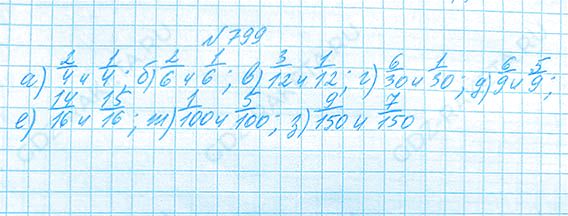 №799
а) 2/4 и 1/4; б) 2/6 и 1/6; в) 3/12 и 1/12; г) 6/30 и 1/30; д) 6/9 и 5/9;
е) 14/16 и 15/16; ж) 1/100 и 5/100; з) 9/150 и 7/150